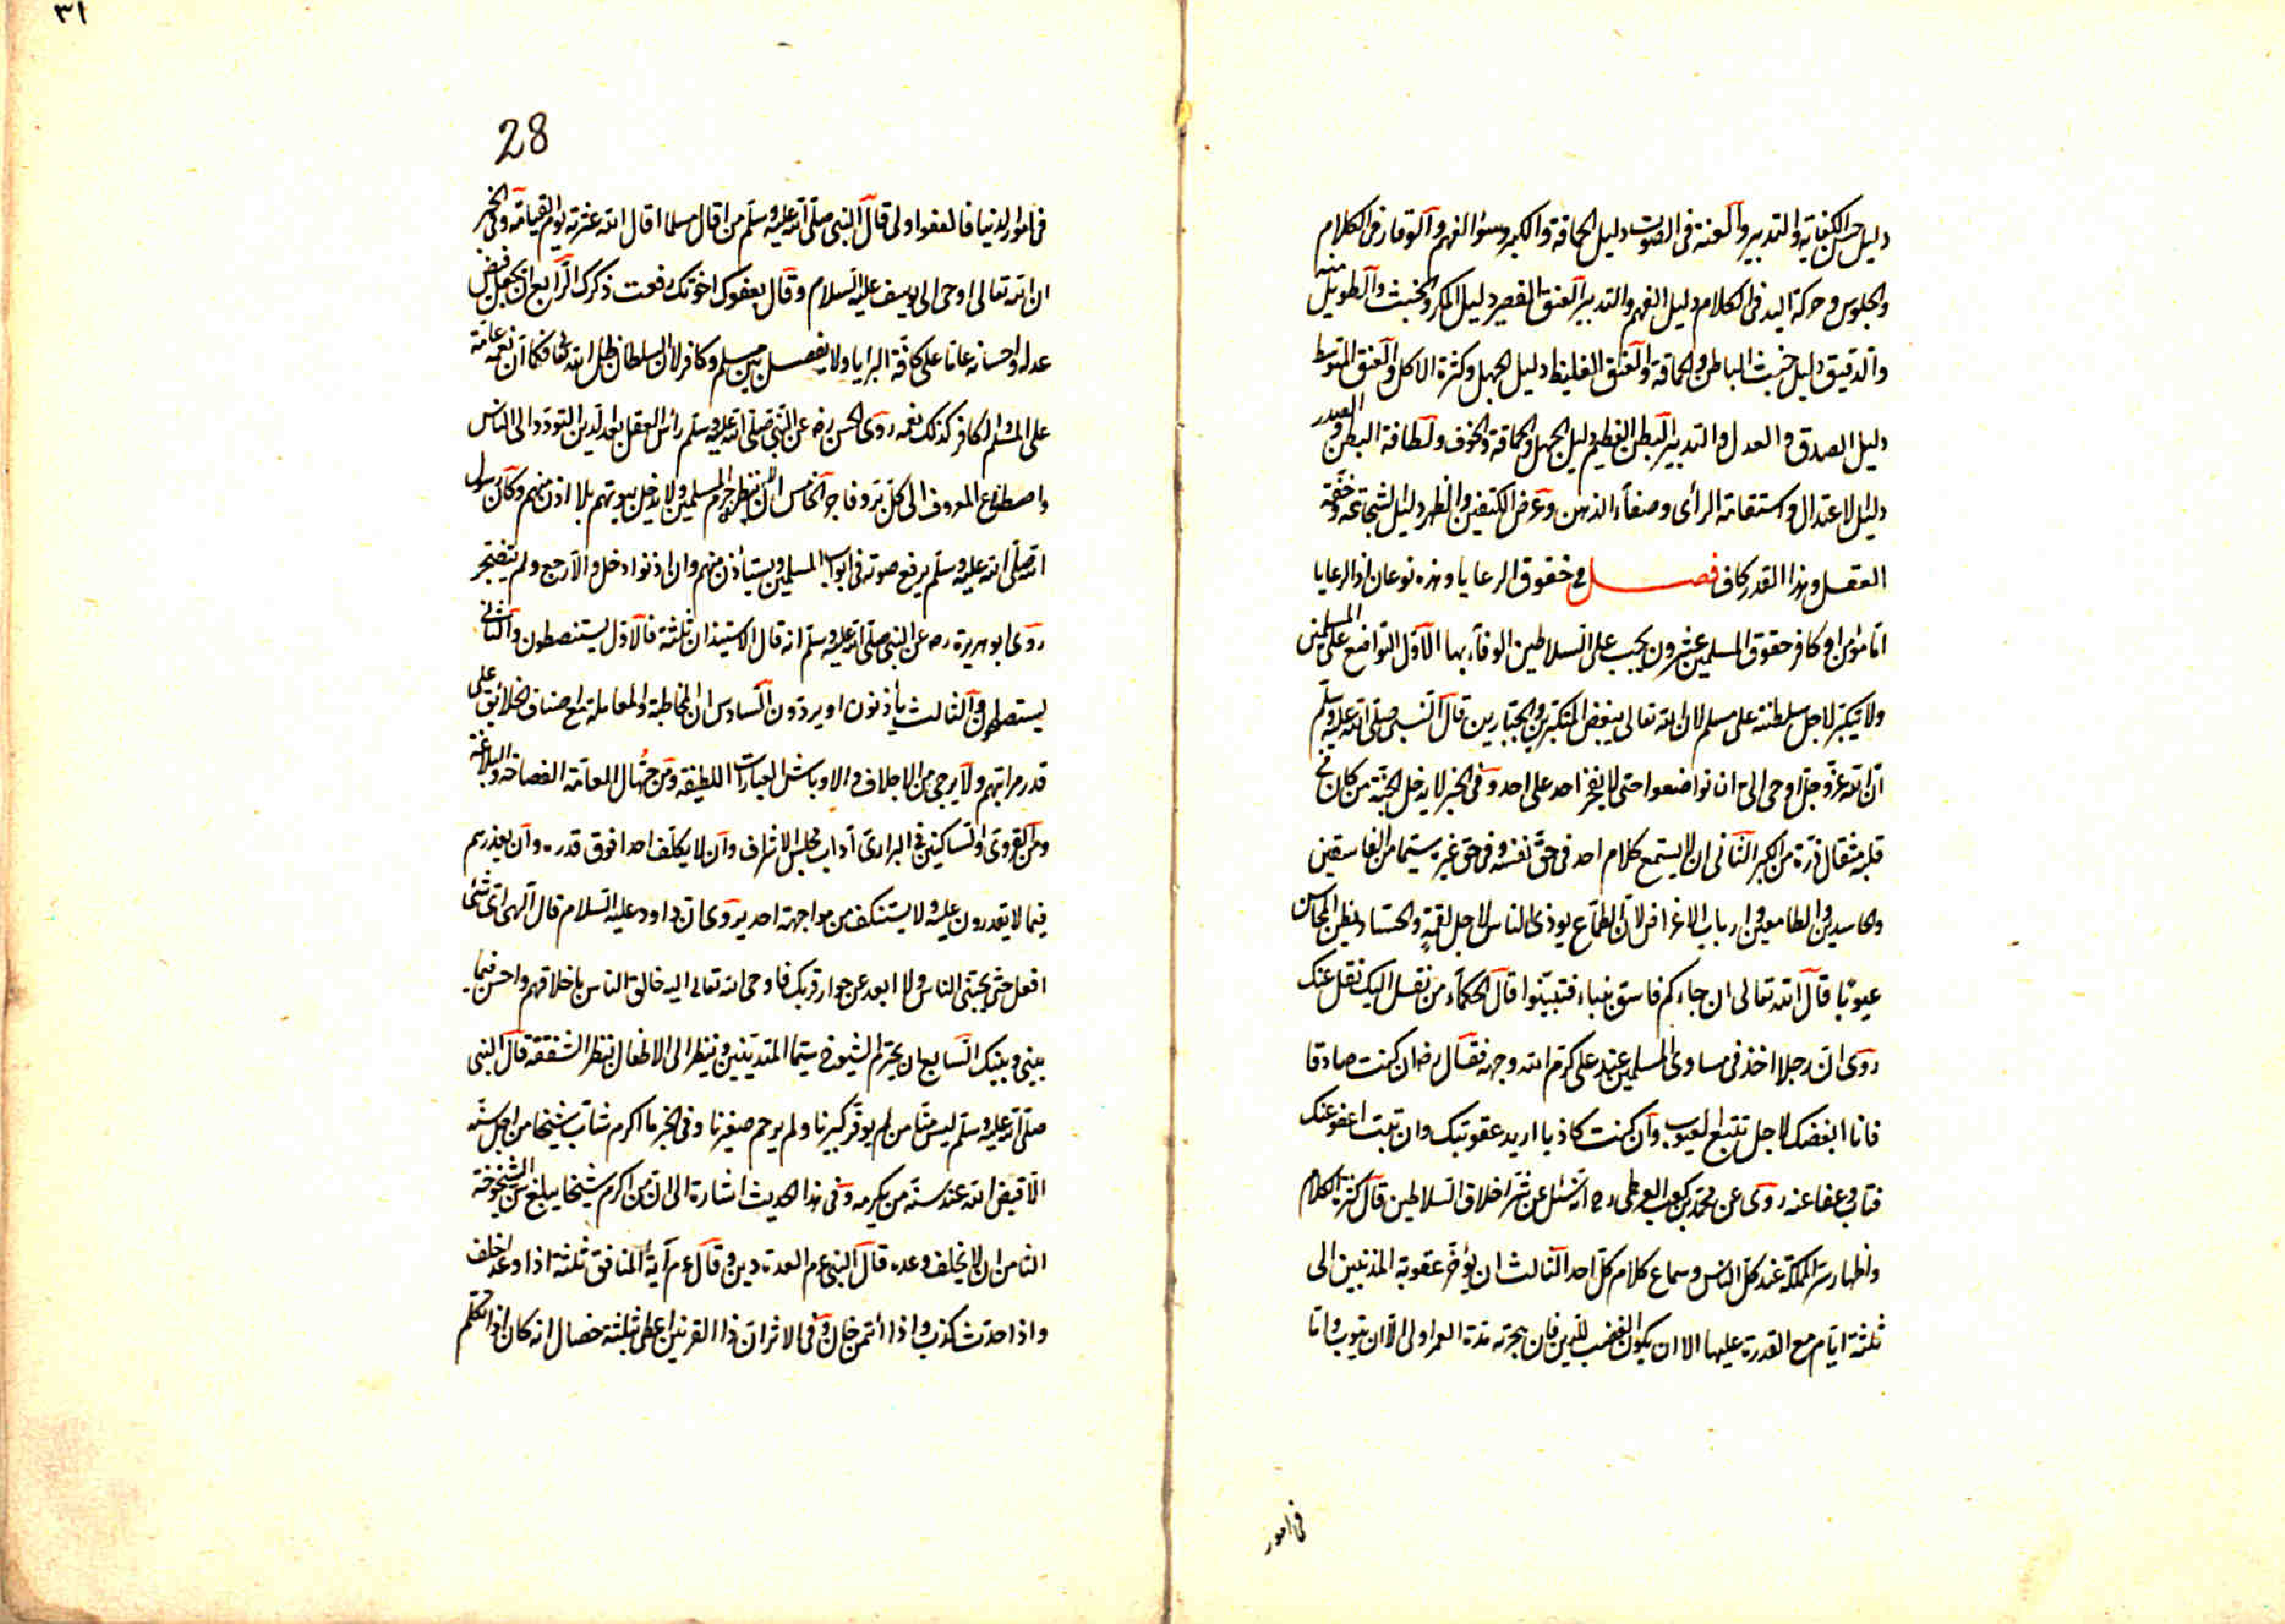 دليل حسن الكفاية والتدبير والغنة في الصوت دليل الحماقة والكبر وسوء الفهم والوقار في الكلام
والجلوس وحركة اليد في الكلام دليل الفهم والتدبير العنق القصير دليل المكر والخبث والطويل منه
والدقيق دليل خبث الباطن والحماقة والعنق الغليظ دليل الجهل وكثرة الاكل والعنق المتوسط
دليل الصدق والعدل والتدبير البطن العظيم دليل الجهل والحماقة والخوف ولطافة البطن والصدر
دليل الاعتدال واستقامة الرأى وصفاء الذهن وعرض الكتفين والظهر دليل الشجاعة وخفة
العقل وهذا القدر كاف فصل في حقوق الرعايا وهذه نوعان اذ الرعايا
اما مؤمن او كافر حقوق المسلمين عشرون يجب على السلاطين الوفاء بها الاول التواضع على المسلمين
ولا يتكبر لاجل سلطنته على مسلم لان الله تعالى يبغض المتكبرين والجبارين قال النبي صلى الله عليه وسلم
ان الله عز وجل اوحى الى ان تواضعوا حتى لا يفخر احد على احد وفى الخبر لا يدخل الجنة من كان في
قلبه مثقال ذرة من الكبر الثاني ان لا يستمع كلام احد في حق نفسه وفي حق غيره سيما من الفاسقين
والحاسدين والطامعين وارباب الاغراض لان الطماع يوذى الناس لاجل لقمة والحساد يظن المحاسن
عيوبا قال الله تعالى ان جاءكم فاسق بنباء فتبينوا قال الحكماء من نقل اليك نقل عنك
روى ان رجلا اخذ فى مساوى المسلمين عند على كرم الله وجهه فقال رضه ان كنت صادقا
فانا ابغضك لاجل تتبع العيوب وان كنت كاذبا اريد عقوبتك وان تبت اعفو عنك
فتاب وعفا عنه روى عن محمد بن كعب القرظى رح انه سئل عن شر اخلاق السلاطين قال كثرة الكلام
واظهار سر المملكة عند كل الناس وسماع كلام كل احد الثالث ان يؤخر عقوبة المذنبين الى
ثلثة ايام مع القدرة عليها الا ان يكون الغضب للدين فان هجرته مدة العمر اولى الا ان يتوب واما
في امور
٣١
28
فى امور الدنيا فالعفو اولى قال النبي صلى الله عليه وسلم من اقال مسلما اقال الله عثرته يوم القيامة وفى الخبر
ان الله تعالى اوحى الى يوسف عليه السلام وقال بعفوك اخوتك رفعت ذكرك الرابع ان يجعل فيض
عدله واحسانه عاما على كافة البرايا ولا يفصل بين مسلم وكافر لان السلطان ظل الله فكما ان نعمه عامة
على المسلم والكافر كذلك نعمه روى الحسن رضه عن النبي صلى الله عليه وسلم رأس العقل بعد الدين التودد الى الناس
واصطناع المعروف الى كل بر وفاجر الخامس ان لا ينظر حرم المسلمين ولا يدخل بيوتهم بلا اذن منهم وكان رسول
الله صلى الله عليه وسلم يرفع صوته فى ابواب المسلمين ويستأذن منهم وان اذنوا دخل والا رجع ولم يتضجر
روى ابو هريرة رضه عن النبي صلى الله عليه وسلم انه قال الاستيذان ثلثة فالاول يستنصطون والثانى
يستصلحون والثالث يأذنون او يردون السادس ان المخاطبة والمعاملة مع اصناف الخلائق على
قدر مراتبهم ولا يرجى من الاجلاف والاوباش العبارات اللطيفة ومن جهال العامة الفصاحة والبلاغة
ومن القروى والساكنين في البرارى آداب مجلس الاشراف وان لا يكلف احدا فوق قدره وان يعذرهم
فيما لا يقدرون عليه ولا يستنكف من مواجهة احد يروى ان داود عليه السلام قال الهى اى شئ
افعل حتى يحبنى الناس ولا ابعد عن جوار قربك فاوحى الله تعالى اليه خالق الناس باخلاقهم واحسن فيما
بينى وبينك السابع ان يحترم الشيوخ سيما المتدينين وينظر الى الاطفال بنظر الشفقة قال النبي
صلى الله عليه وسلم ليس منا من لم يوقر كبيرنا ولم يرحم صغيرنا وفى الخبر ما اكرم شاب شيخا من اجل سنه
الا قيض الله عند سنه من يكرمه وفى هذا الحديث اشارة الى ان من اكرم شيخا يبلغ سن الشيخوخة
الثامن ان لا يخلف وعده قال النبي عم العدة دين وقال عم آية المنافق ثلثة اذا وعد اخلف
واذا حدث كذب واذا أتمن خان وفى الاثر ان ذا القرنين اعطى ثلثة خصال انه كان اذا تكلم